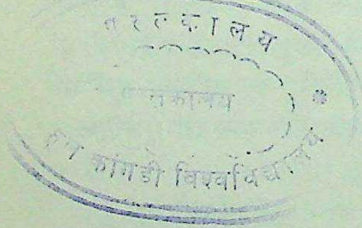 पुस्तकालय
पुस्तकालय
कांगडी विश्वविद्यालय